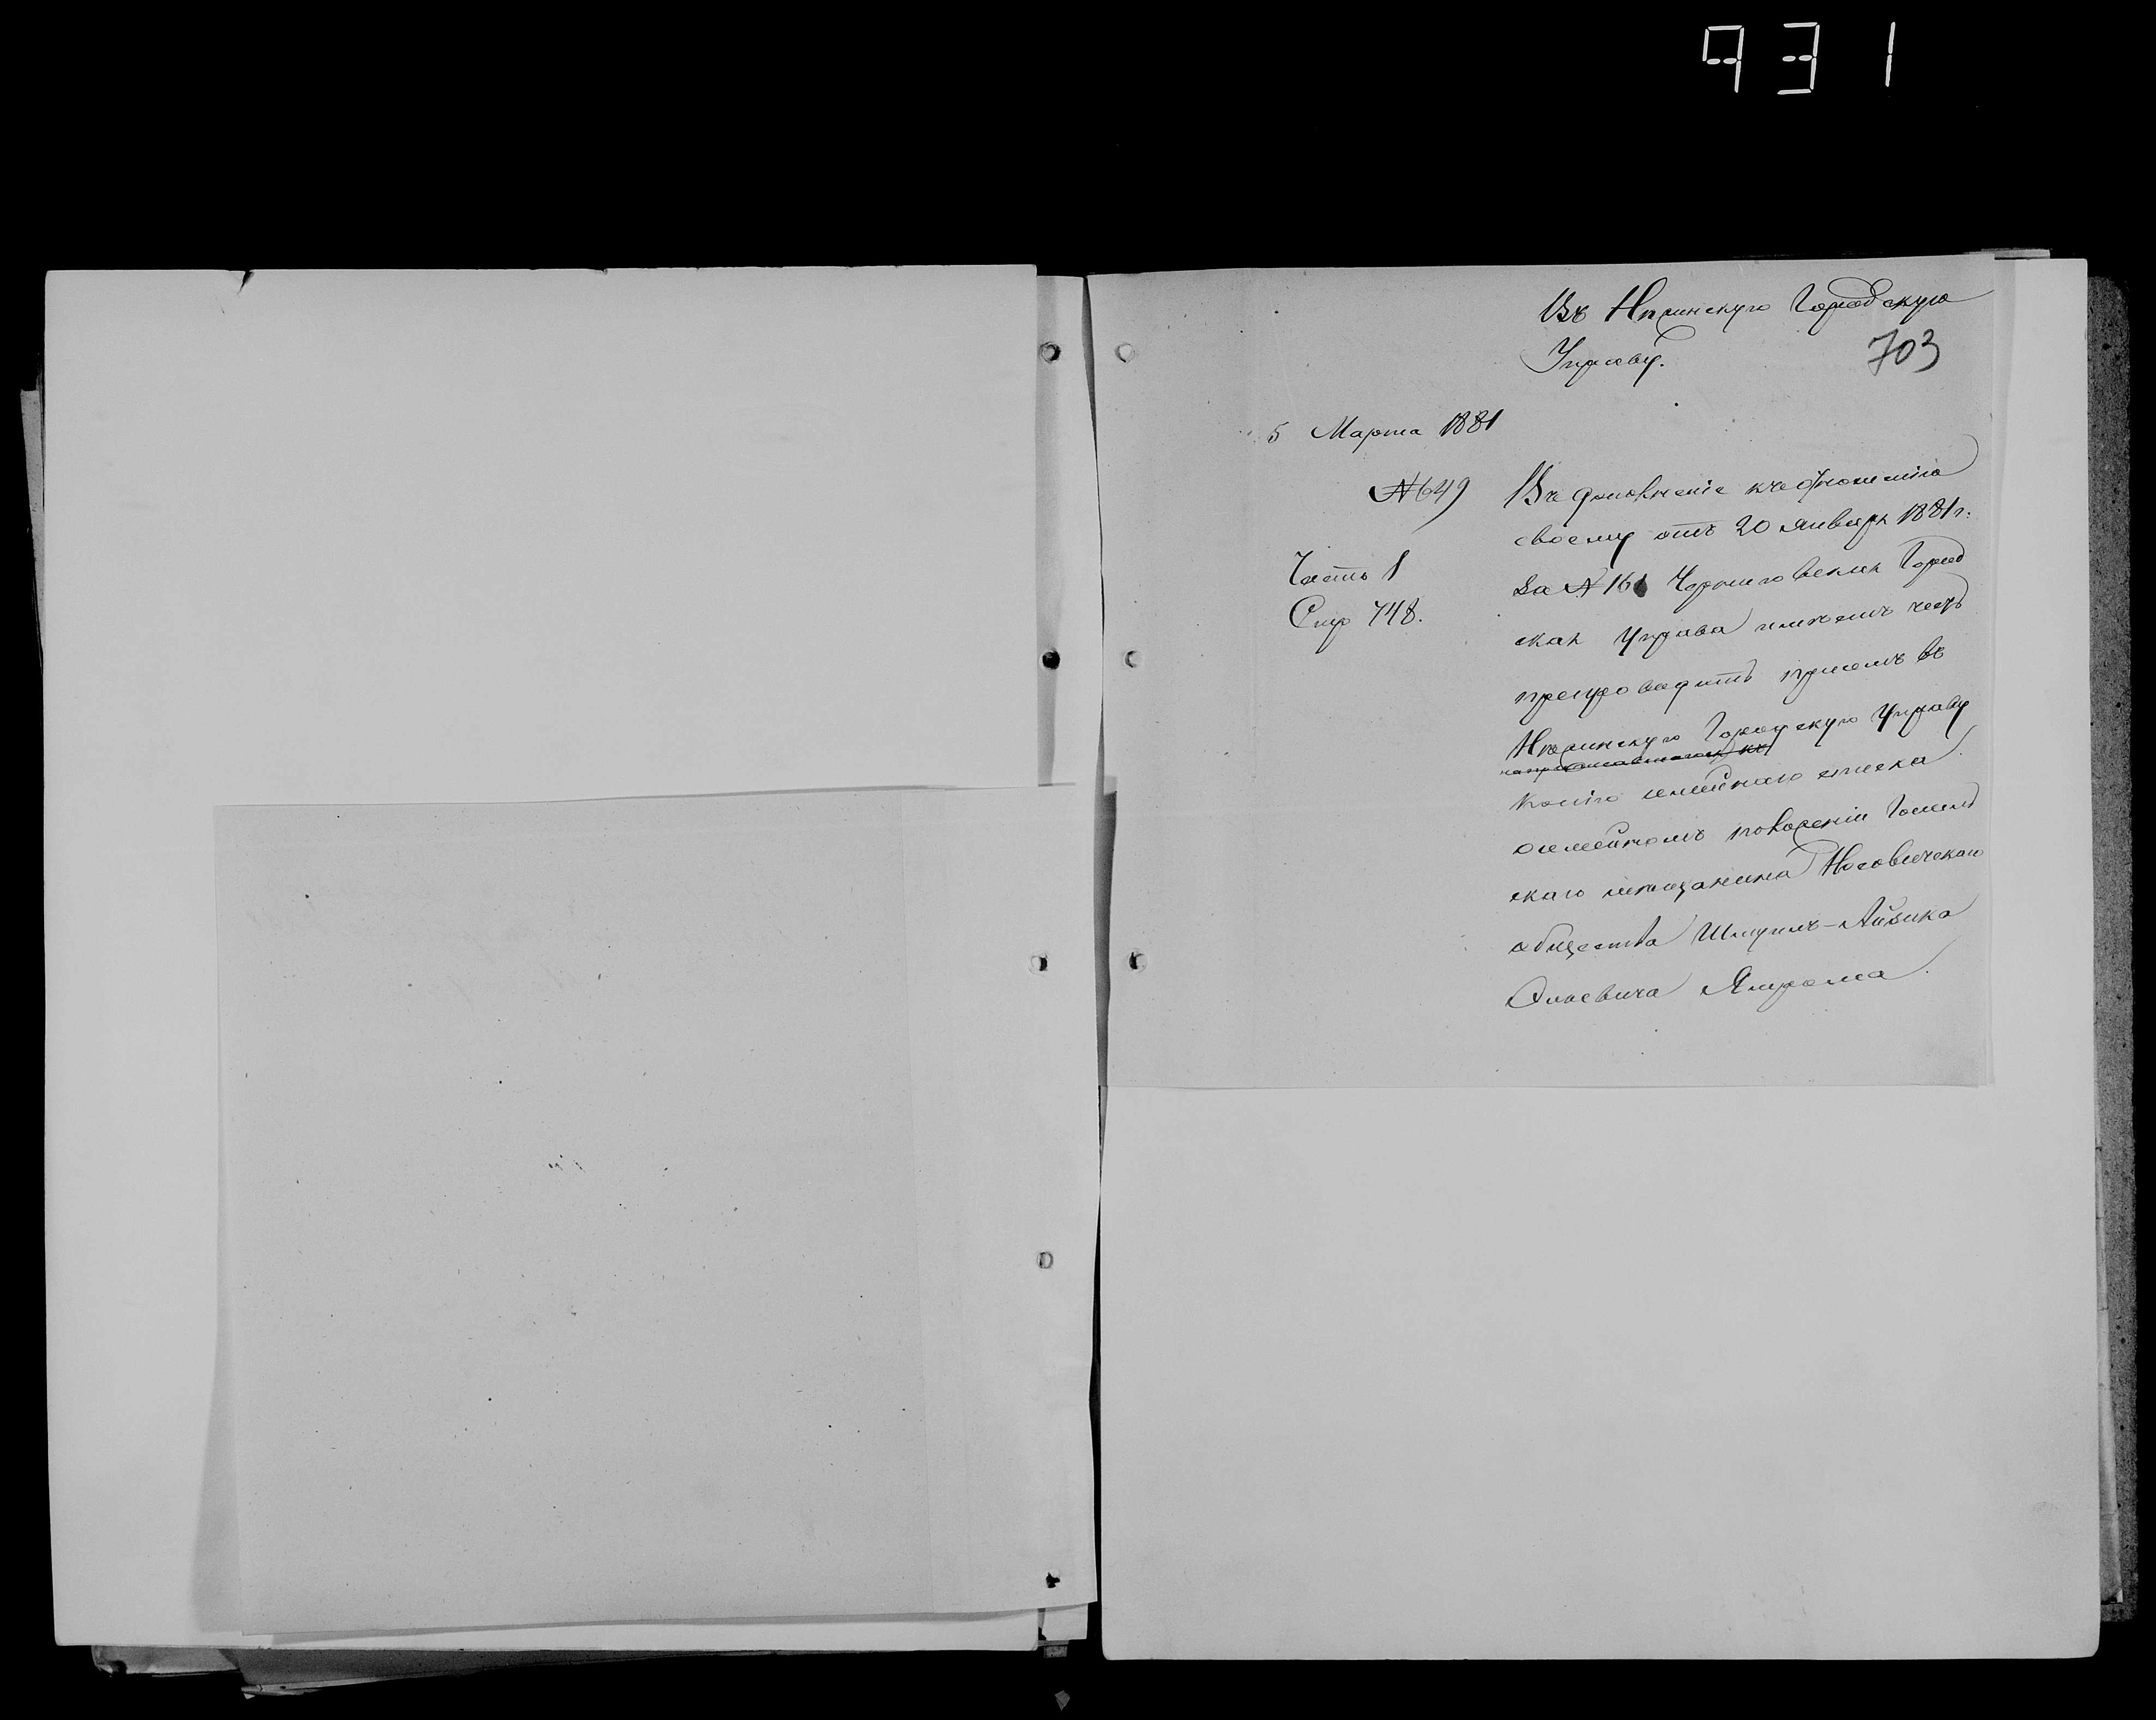 931
Въ Нѣжинскую Городскую
Управу.
703
5 Марта 1881
№ 649
Часть 1
Стр 748.
Въ дополненіе къ отношенію
своему отъ 20 Января 1881 г.
за № 161 Черниговская Город
ская Управа имѣетъ честь
препроводить при семъ въ
Нѣжинскую Городскую Управу
копію семейнаго списка
о семейномъ положеніи Гомель
скаго мѣщанина Носовичскаго
общества Шмуилъ-Айзика
Ямрома